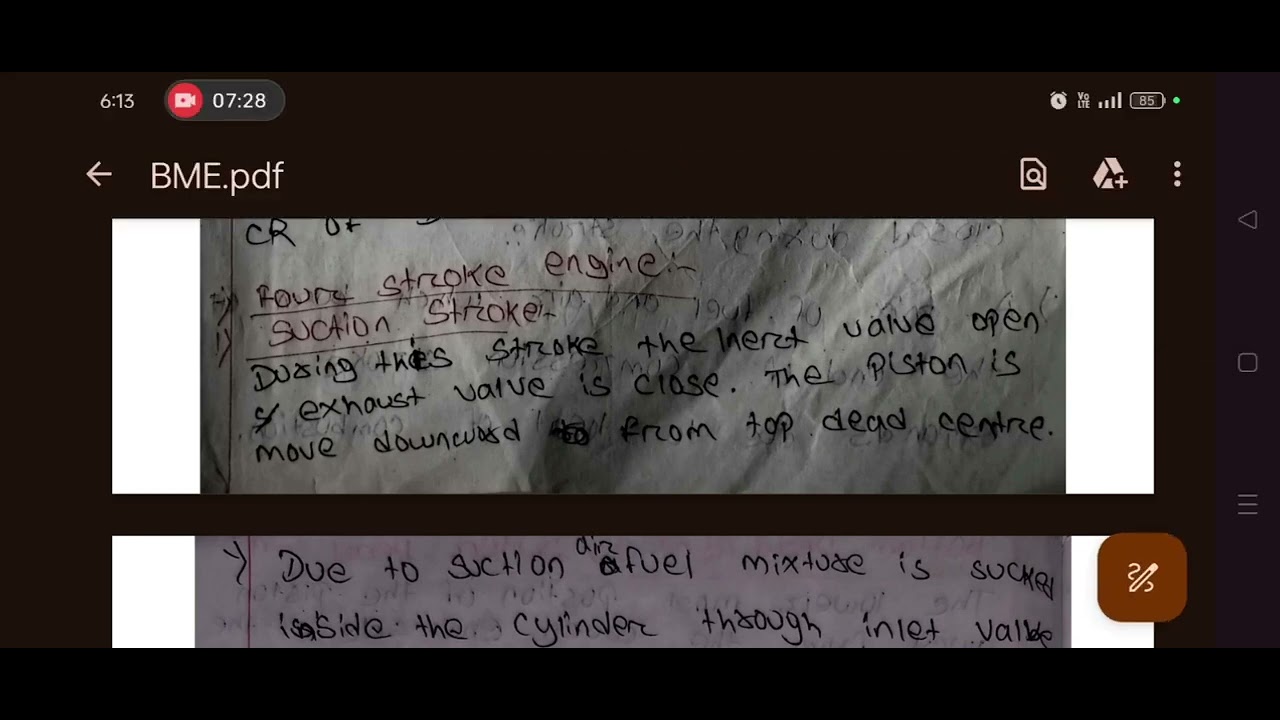 6:13
07:28
Vo
LTE
85
BME.pdf
CR of
Four stroke engine:-
1) Suction Stroke:-
During this stroke the valve open
& exhaust valve is close. The piston is
move from top dead centre.
Due to suction air fuel mixture is sucked
inside the cylinder through inlet valve